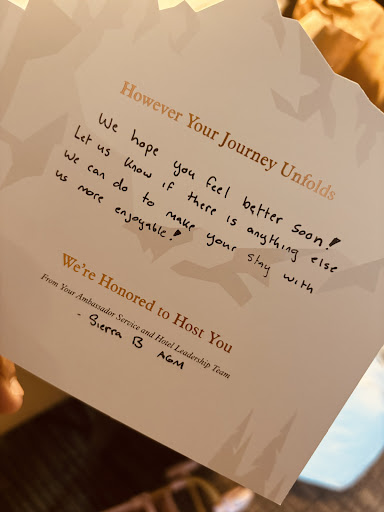 However Your Journey Unfolds
We hope you feel better soon!
Let us know if there is anything else
we can do to make your stay with
us more enjoyable!
We're Honored to Host You
From Your Ambassador Service and Hotel Leadership Team
- Sierra B AGM